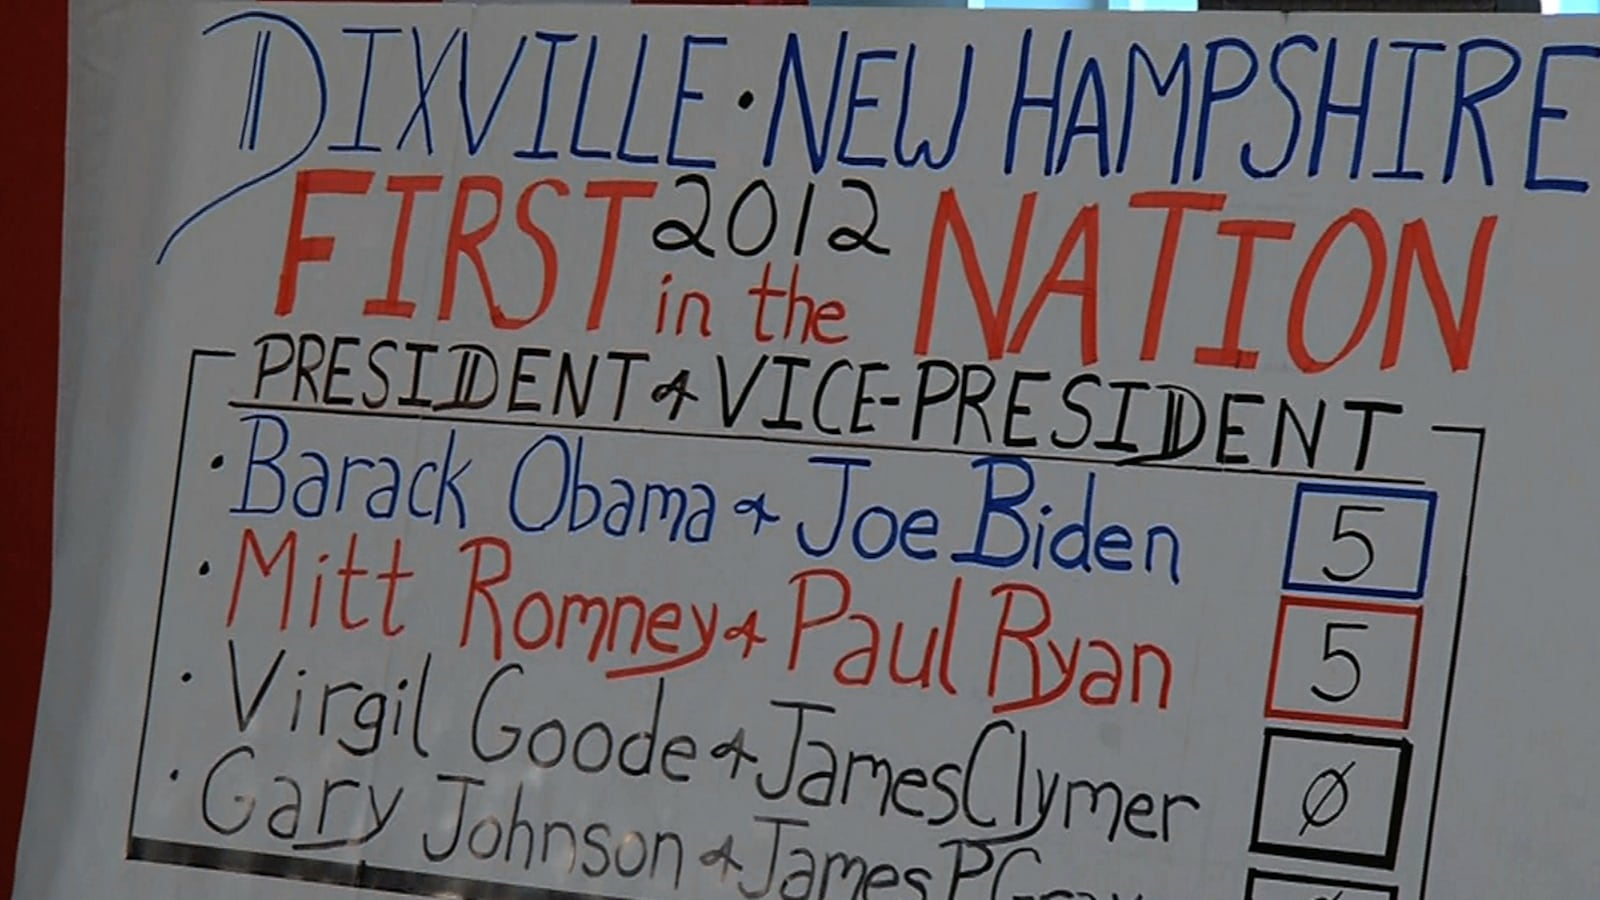 DIXVILLE · NEW HAMPSHIRE
FIRST 2012 in the NATION
PRESIDENT & VICE-PRESIDENT
· Barack Obama & Joe Biden 5
· Mitt Romney & Paul Ryan 5
· Virgil Goode & James Clymer Ø
· Gary Johnson & James P Gray Ø